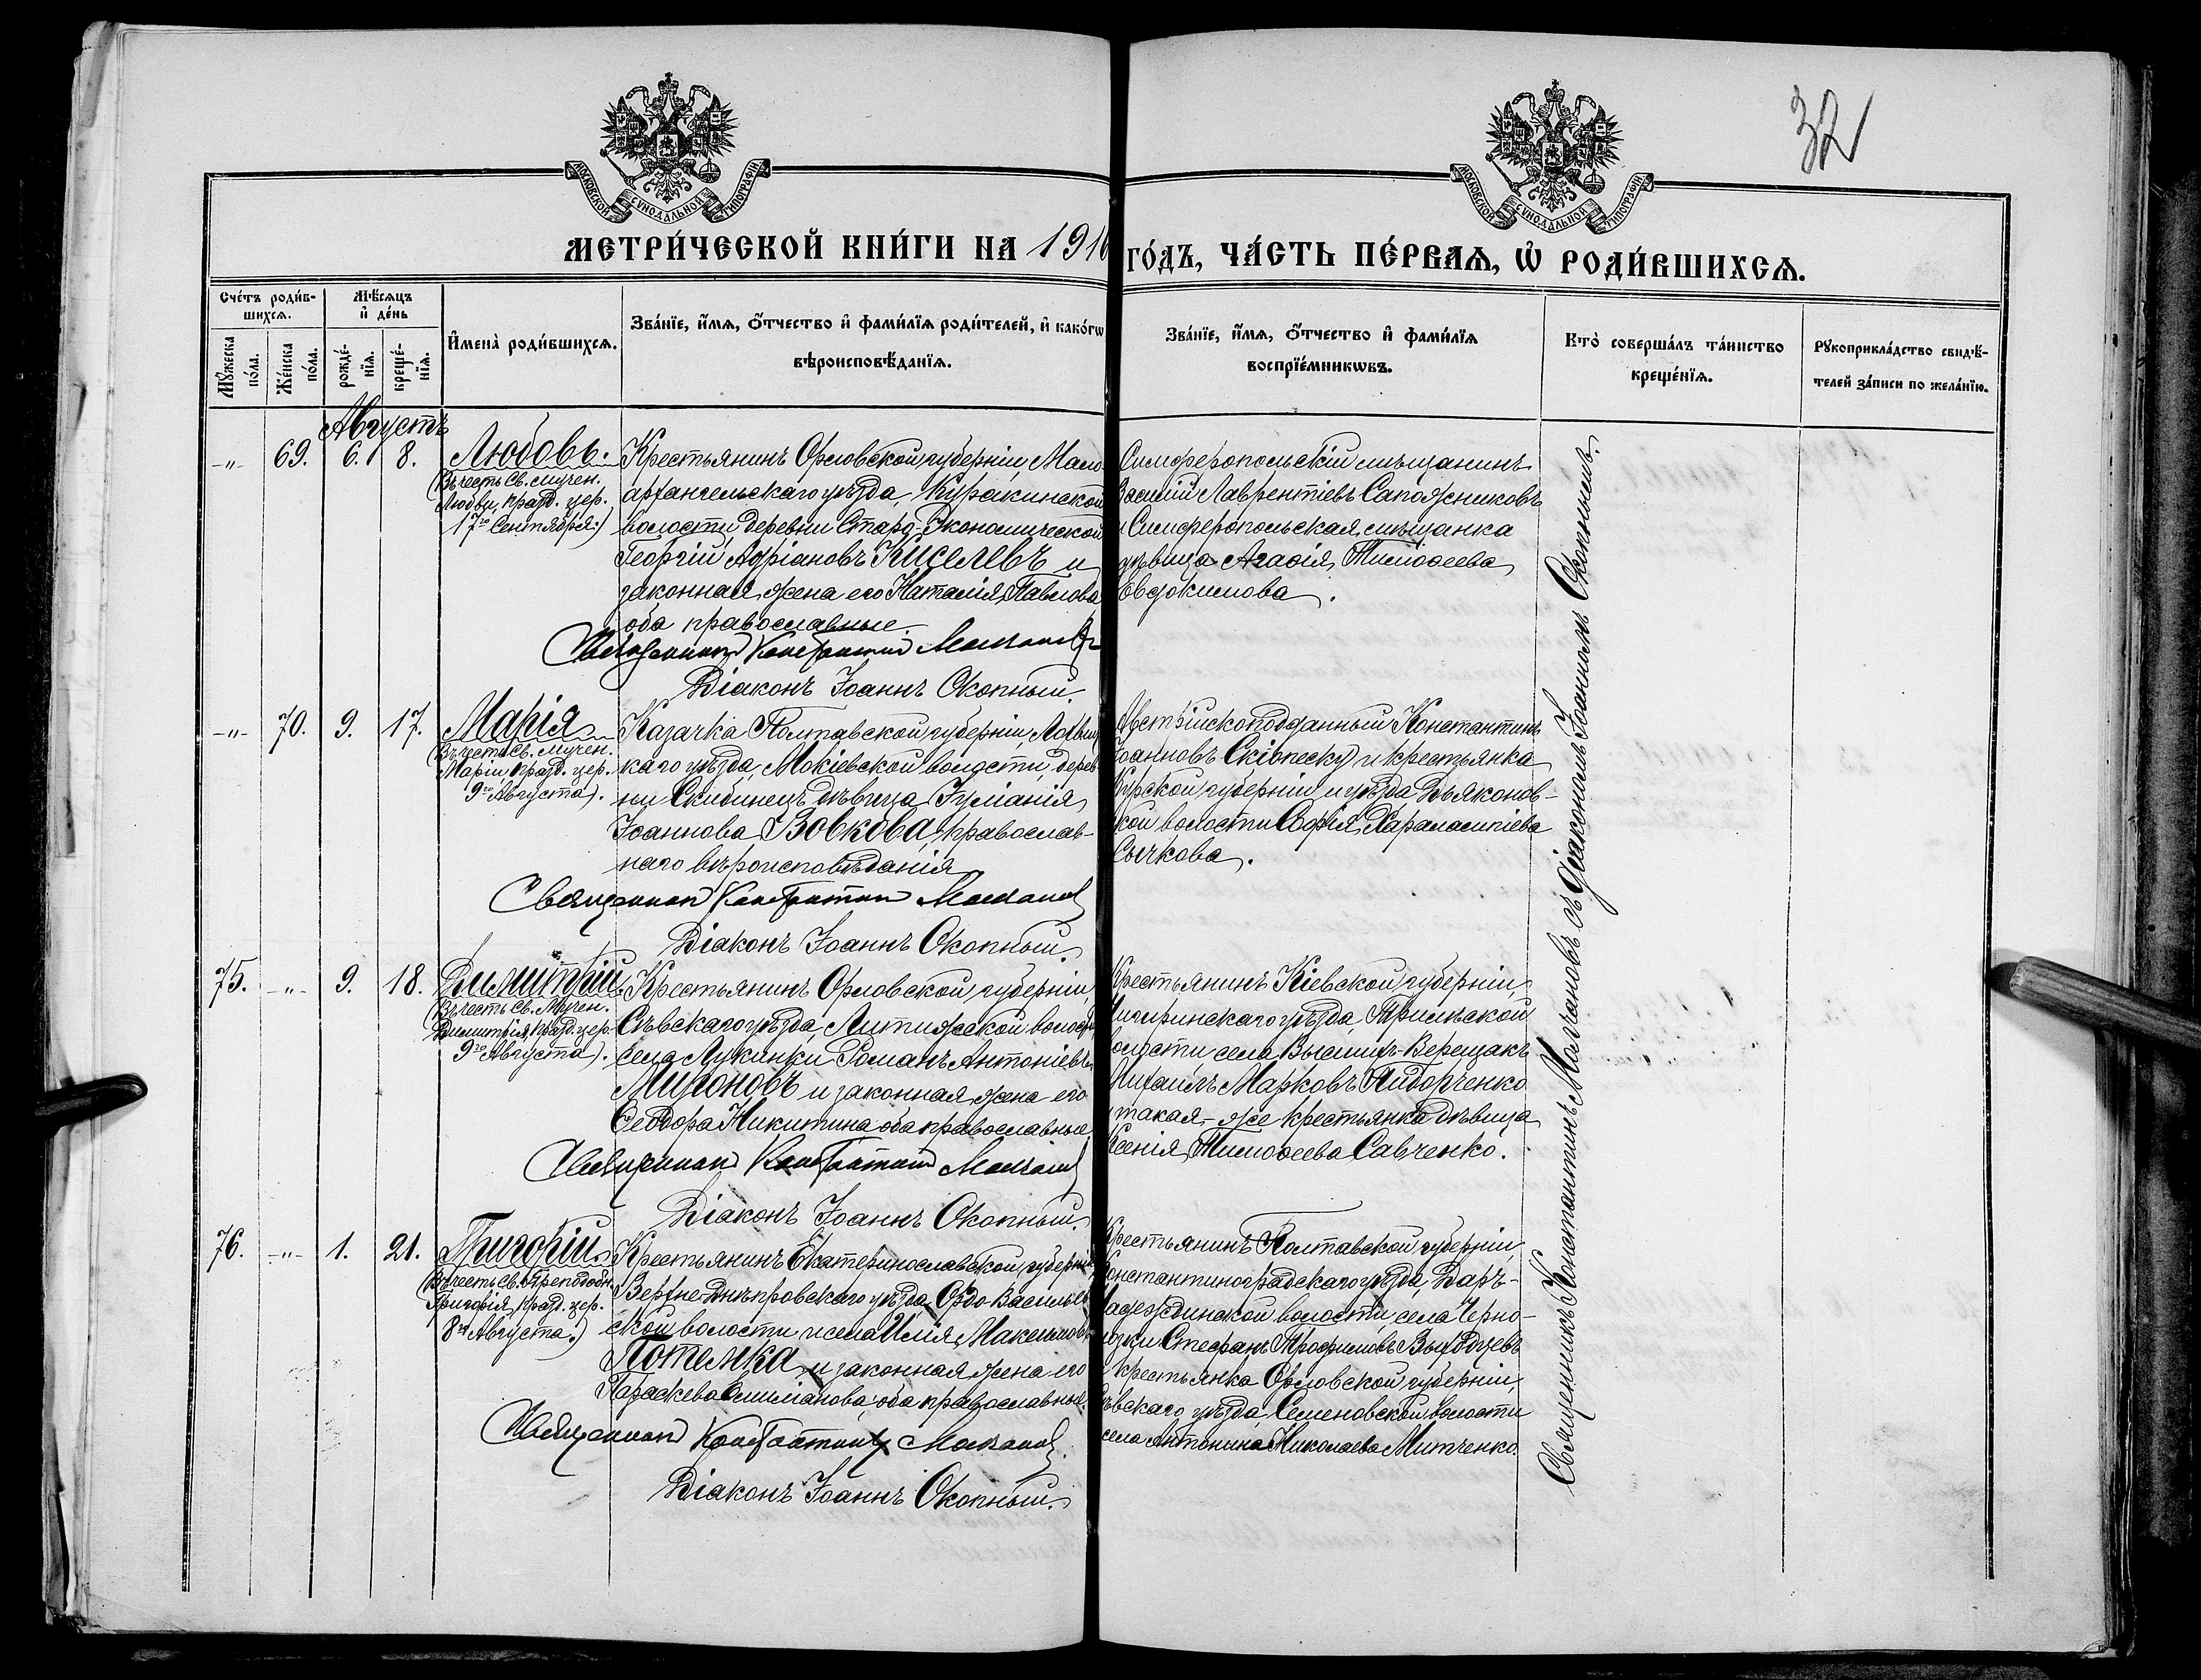 32
МОСКОВСКОЙ СУНОДАЛЬНОЙ ТИПОГРАФІИ
МОСКОВСКОЙ СУНОДАЛЬНОЙ ТИПОГРАФІИ
МЕТРИ́ЧЕСКОЙ КНИ́ГИ НА 1910 ГО́ДЪ, ЧА́СТЬ ПЕ́РВАѦ, Ѡ҆ РОДИ́ВШИХСѦ.
Сче́тъ роди́в-
шихсѧ.
Мѣ́сѧцъ
и҆ де́нь
Мꙋ́жеска
по́ла.
Же́нска
по́ла.
рожде́-
нїѧ.
креще́-
нїѧ.
И҆мена̀ роди́вшихсѧ.
Зва́нїе, и҆́мѧ, ѻ҆́тчество и҆ фами́лїѧ роди́телей, и҆ како́гѡ
вѣроисповѣ́данїѧ.
Зва́нїе, и҆́мѧ, ѻ҆́тчество и҆ фами́лїѧ
воспрїе́мникѡвъ.
Кто̀ соверша́лъ та́инство
креще́нїѧ.
Рꙋкоприкла́дство свидѣ́-
телей за́писи по жела́нїю.
Августъ
-"- 69. 6. 8. Любовь.
Въ честь Св. мучен.
Любви, празд. цер.
17го Сентября.)
Крестьянинъ Орловской губерніи, Мало-
архангельскаго уѣзда, Куракинской
волости, деревни Старо-Экономической
Георгій Адріановъ Киселевъ и
законная жена его Наталія Павлова,
оба православные.
Священникъ Константинъ Молчановъ
Діаконъ Іоаннъ Окопный.
Симферопольскій мѣщанинъ
Василій Лаврентіевъ Сапожниковъ
и Симферопольская мѣщанка
дѣвица Агаѳія Тимоѳеева
Евдокимова.
-"- 70. 9. 17. Марія
Въ честь Св. Мучен.
Маріи, празд. цер.
9го Августа).
Казачка Полтавской губерніи, Лохвиц
каго уѣзда, Мокіевской волости, дерев
ни Скибинецъ дѣвица Іуліанія
Іоаннова Вовкова, православ-
наго вѣроисповѣданія
Священникъ Константинъ Молчановъ
Діаконъ Іоаннъ Окопный.
Австрійскоподданный Константинъ
Іоанновъ и крестьянка
Курской губерніи и уѣзда Дьяконов-
ской волости Софія Харалампіева
Сычкова.
75. -"- 9. 18. Димитрій
Въ честь Св. Мучен.
Димитрія, празд. цер.
9го Августа).
Крестьянинъ Орловской губерніи,
Сѣвскаго уѣзда, Литижской волости
села Лукинки Романъ Антоніевъ
Мироновъ и законная жена его
Ѳеодора Никитина оба православные
Священникъ Константинъ Молчановъ
Діаконъ Іоаннъ Окопный.
Крестьянинъ Кіевской губерніи,
Чигиринскаго уѣзда, Трилѣской
волости села Высшихъ-Верещакъ
Михаилъ Марковъ Пидорченко
и такая-же крестьянка дѣвица
Ксенія Тимоѳеева Савченко.
76. -"- 1. 21. Григорій
Въ честь Св. Преподобн.
Григорія, празд. цер.
8го Августа.)
Крестьянинъ Екатеринославской губерніи,
Верхне-Днѣпровскаго уѣзда, Ордо-Васильев
ской волости и села Илія Максимовъ
Потемка и законная жена его
Параскева Емиліанова, оба православные.
Священникъ Константинъ Молчановъ
Діаконъ Іоаннъ Окопный.
Крестьянинъ Полтавской губерніи,
Константиноградскаго уѣзда, Даръ-
Надеждинской волости, села Черно-
Стефанъ Трофимовъ
и крестьянка Орловской губерніи,
Сѣвскаго уѣзда, Семеновской волости
села Антонина Николаева Митченко.
Священникъ Константинъ Молчановъ съ діакономъ Іоанномъ Окопнымъ.